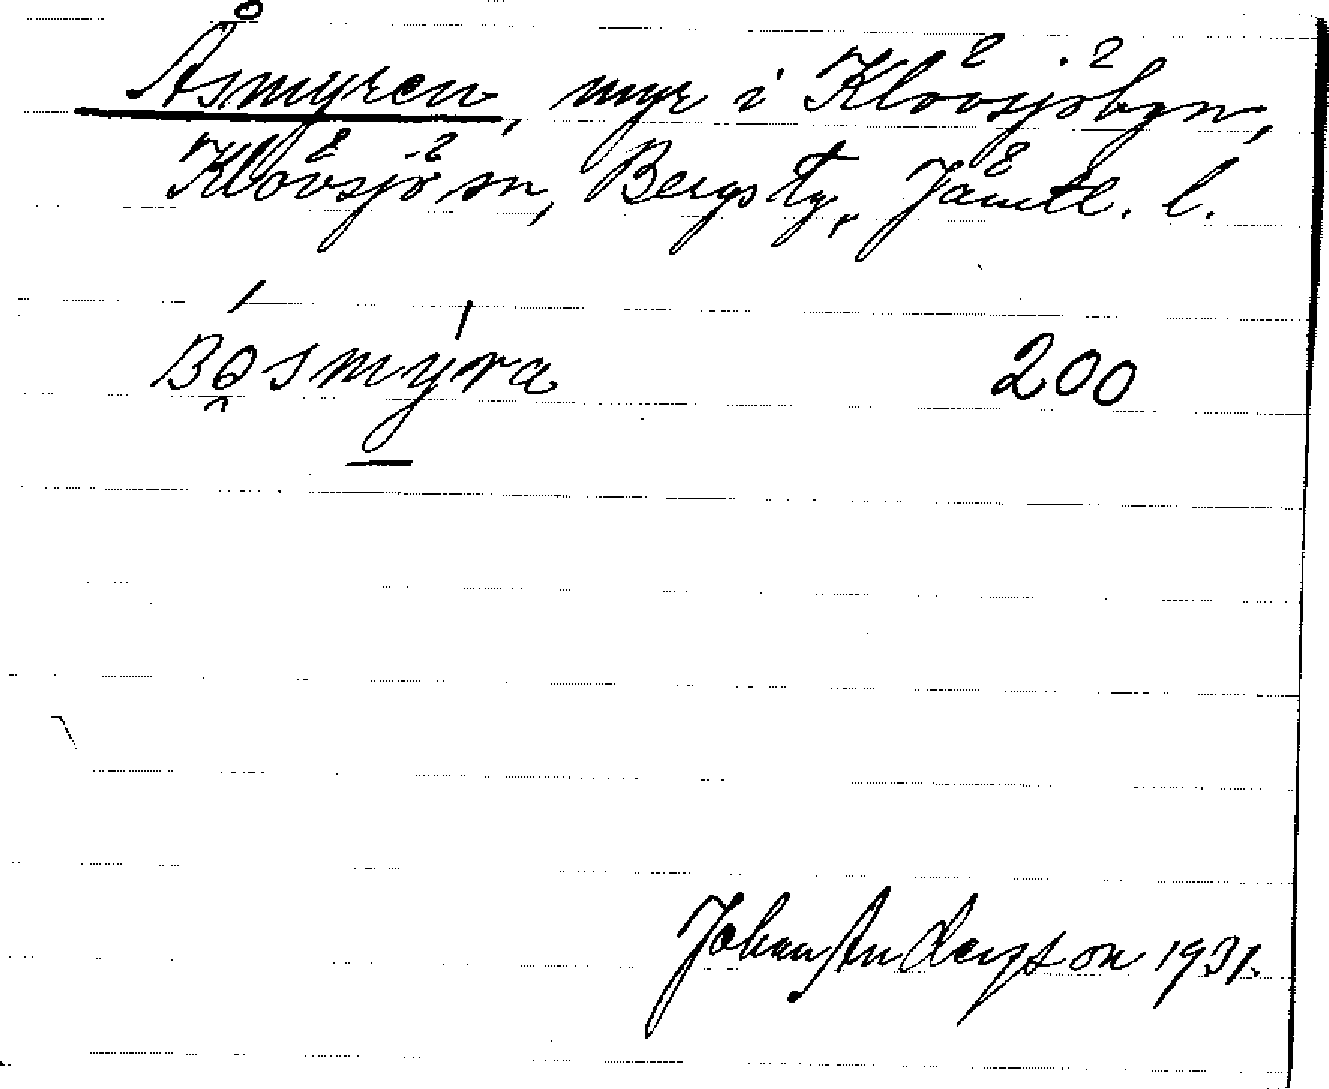 Åsmyren, myr i Klövsjöbyn,
Klövsjö sn, Bergs tg, Jämtl. l.
Bo̯smyra 200
Johan Anderson 1931.